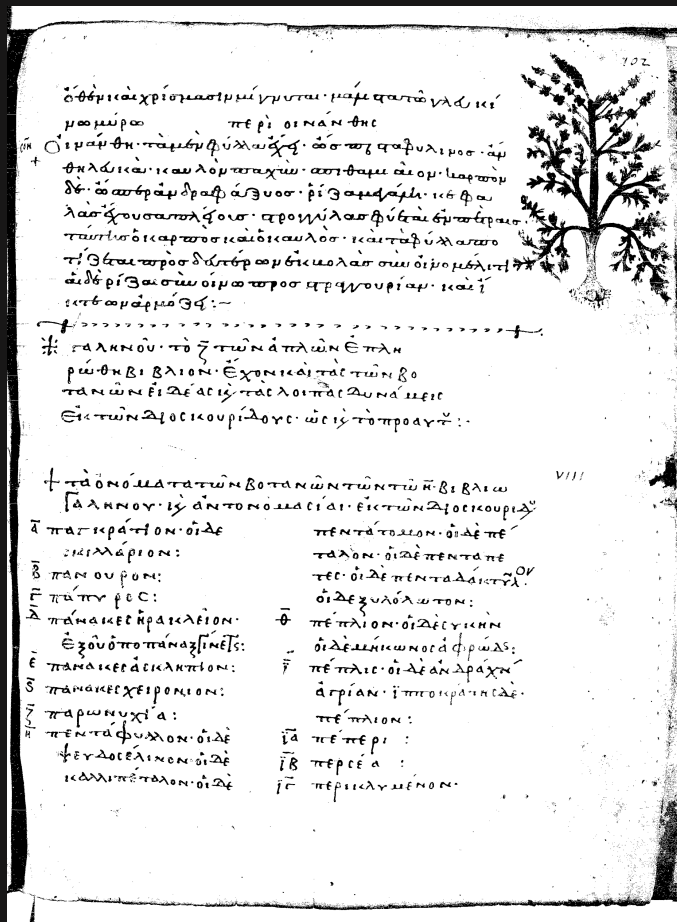 102
ὅθεν καὶ χρίσμασιν μίγνυται· μάλιστα τῶ γλευκί
νω μύρω περὶ οἰνάνθης
Οἰνάνθη· τὰ μὲν φύλλα ἔχει· ὡς σταφυλῖνος· ἄν
θη λευκὰ· καυλὸν παχὺν· σπιθαμιαῖον· καρπὸν
δὲ· ὥσπερ ἀνδραφάξυος· ῥίζα μεγάλη· κεφα
λὰς ἔχουσα πλείους· στρογγύλας φύεται ἐν πέτραις·
ταύτης ὁ καρπὸς καὶ ὁ καυλὸς· καὶ τὰ φύλλα πο
τίζεται πρὸς δευτέρων ἐκβολὰς σὺν οἰνομέλιτι
αἱ δὲ ῥίζαι σὺν οἴνω πρὸς στραγγουρίαν· καὶ ἰ
κτερων ἁρμόζει:~
γαληνοῦ· τὸ ζ τῶν ἁπλῶν ἐπλη
ρώθη βιβλίον· ἔχον καὶ τὰς τῶν βο
τανῶν εἰδέας κ τὰς λοιπὰς δυνάμεις
ἐκ τῶν διοσκουρίδους· ὡς κ τὸ προ αυτ:·
VIII
+ τὰ ὀνόματα τῶν βοτανῶν τῶν τῶ η· βιβλίω
Γαληνοῦ· κ ἀντονομασίαι· ἐκ τῶν διοσκουριδ
α παγκράτιον· οἱ δὲ
σκιλλάριον:
β πάνουρον:
γ πάπυρος:
δ πάνακες ἡράκλειον·
ἐξ οὗ ὁποπάναξ γίνεται:
ε πάνακες ἀσκλήπιον:
ϛ πάνακες χειρόνιον:
ζ παρωνυχία:
η πεντάφυλλον· οἱ δὲ
ψευδοσέλινον· οἱ δὲ
καλλιπέταλον· οἱ δὲ
πεντάτομον· οἱ δὲ πε
ταλον· οἱ δὲ πενταπε
τες· οἱ δὲ πενταδάκτυλον·
οἱ δὲ ξυλόλωτον:
θ πέπλιον· οἱ δὲ συκὴν
οἱ δὲ μήκωνος ἀφρώδς:
ι πέπλις· οἱ δὲ ἀνδράχν
ἀγρίαν· ἱπποκράτης δὲ·
πέπλιον:
ια πέπερι :
ιβ περσέα :
ιγ περικλυμένον·